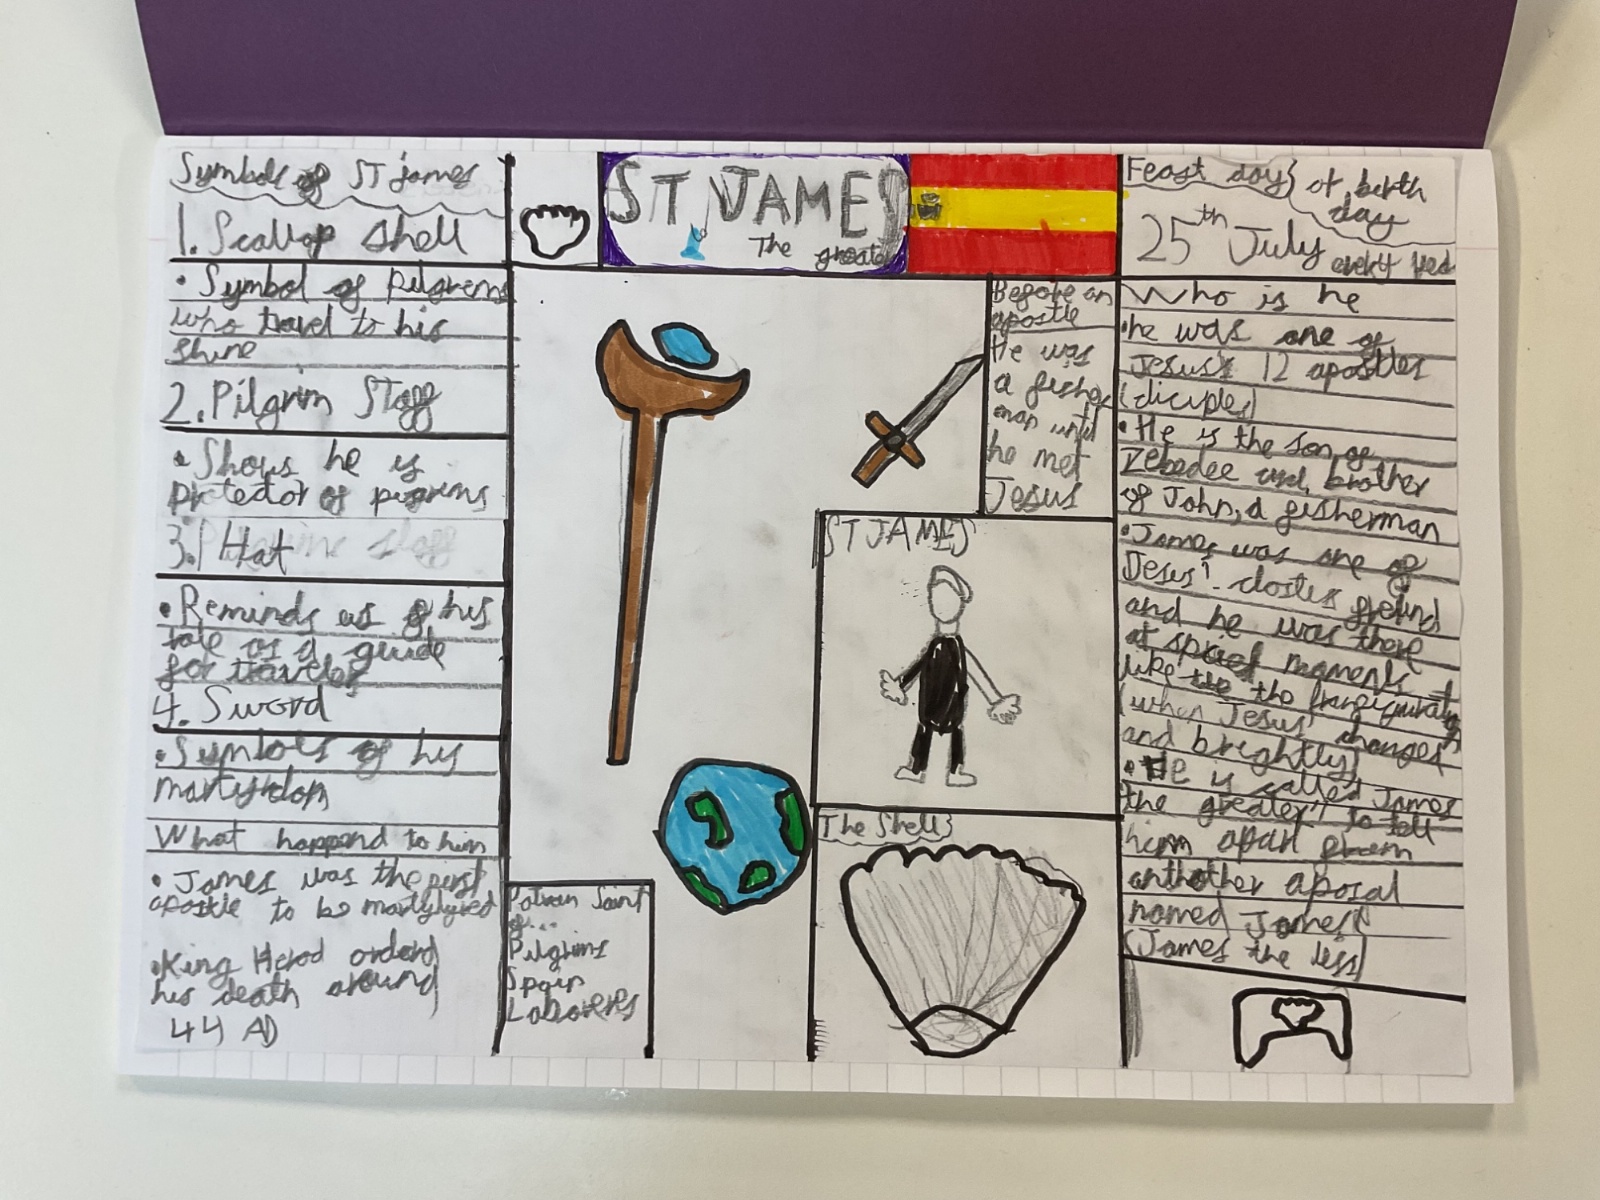 Symbols of ST james
1. Scallop shell
• Symbol of Pilgrems
who travel to his
shine
2. Pilgrim Staff
• Shows he is
protector of pilgrims
3. Hat
• Reminds us of his
role as a guide
for traveler
4. Sword
• Symbols of his
martyrdom
What happend to him
• James was the first
apostle to be martyred
• King Herod orderd
his death around
44 AD
ST JAMES
The greater
Before an
apostle
He was
a fisher
man until
he met
Jesus
ST JAMES
The Shell
Patron Saint
of...
Pilgrims
Spain
Laborers
Feast day
or birth
day
25th July every year
Who is he
• he was one of
Jesus's 12 apostles
(diciples)
• He is the son of
Zebedee and brother
of John, a fisherman
• James was one of
Jesus' closter freind
and he was there
at moments
like the
(when Jesus changes
and brightly)
• He is called James
the greater to tell
him apart from
anthother aposal
named James
(James the less)